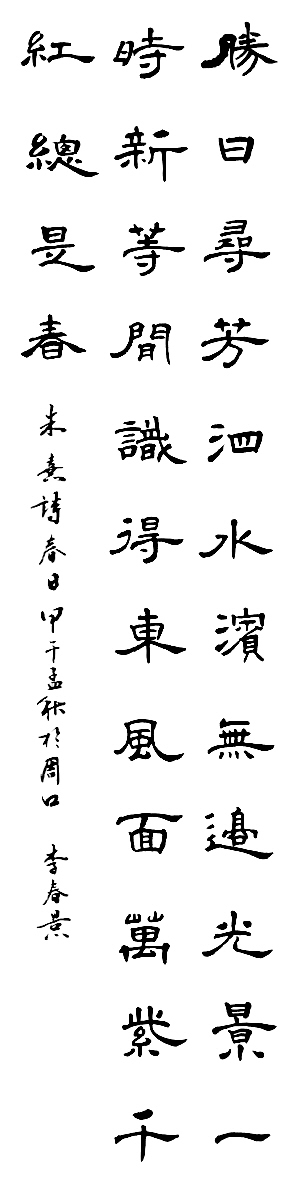 勝日尋芳泗水濱無邊光景一
時新等間識得東風面萬紫千
紅總是春
朱熹詩春日甲午孟秋於周口 李春景